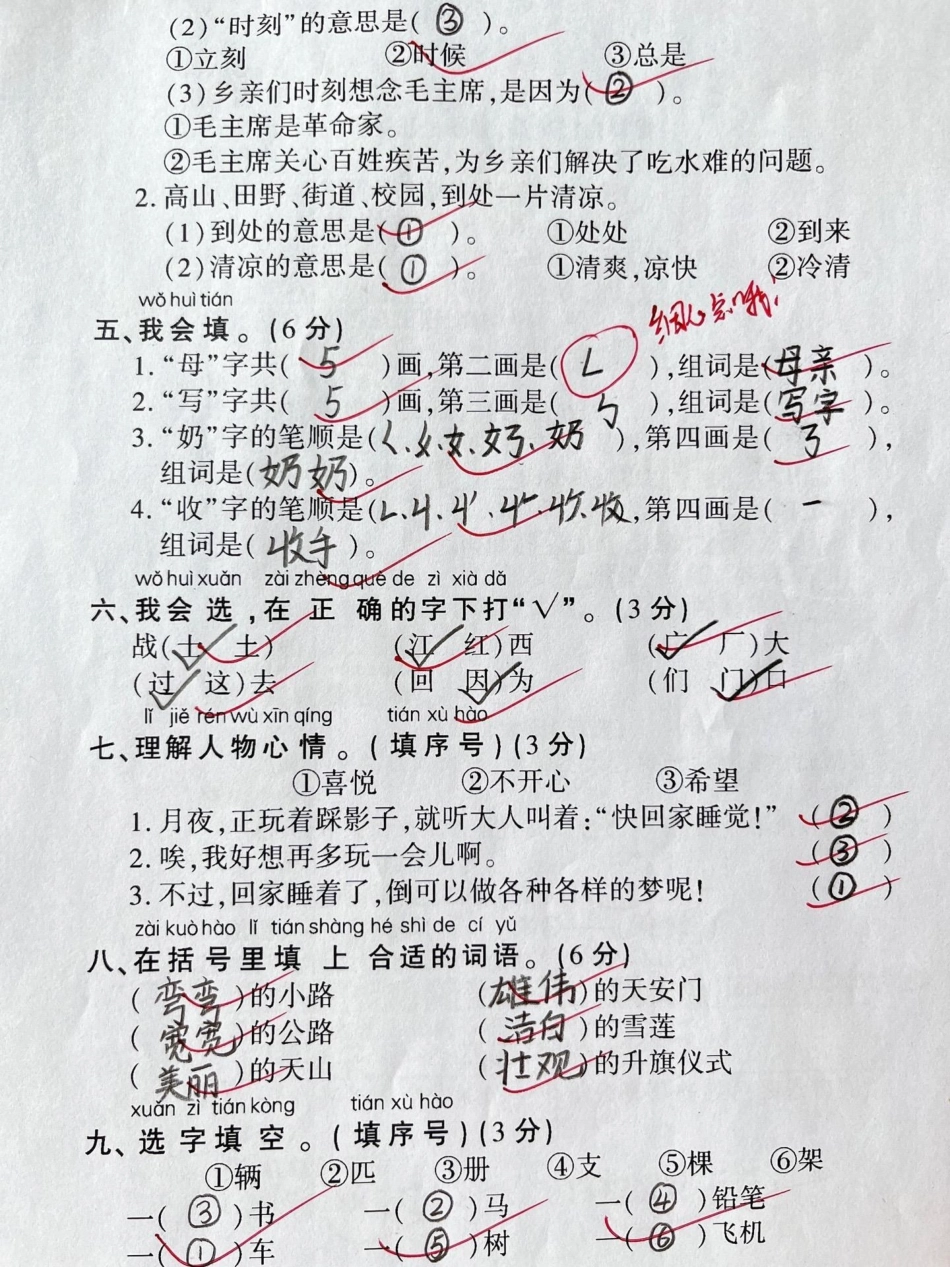 (2)“时刻”的意思是( ③ )。
①立刻 ②时候 ③总是
(3)乡亲们时刻想念毛主席,是因为( ② )。
①毛主席是革命家。
②毛主席关心百姓疾苦,为乡亲们解决了吃水难的问题。
2.高山、田野、街道、校园,到处一片清凉。
(1)到处的意思是( ① )。 ①处处 ②到来
(2)清凉的意思是( ① )。 ①清爽,凉快 ②冷清
wǒ huì tián
五、我会填。(6分)
细心点哦!
1.“母”字共( 5 )画,第二画是( ㄥ ),组词是(母亲)。
2.“写”字共( 5 )画,第三画是( ㄣ ),组词是(写字)。
3.“奶”字的笔顺是( ),第四画是( ),
组词是(奶奶)。
4.“收”字的笔顺是( ),第四画是( 一 ),
组词是( 收手 )。
wǒ huì xuǎn zài zhèng què de zì xià dǎ
六、我会选,在正确的字下打“√”。(3分)
战(士 土) (江 红)西 (广 厂)大
(过 这)去 (回 因)为 (们 门)口
lǐ jiě rén wù xīn qíng tián xù hào
七、理解人物心情。(填序号)(3分)
①喜悦 ②不开心 ③希望
1.月夜,正玩着踩影子,就听大人叫着:“快回家睡觉!” ( ② )
2.唉,我好想再多玩一会儿啊。 ( ③ )
3.不过,回家睡着了,倒可以做各种各样的梦呢! ( ① )
zài kuò hào lǐ tián shàng hé shì de cí yǔ
八、在括号里填上合适的词语。(6分)
(弯弯)的小路 (雄伟)的天安门
(宽宽)的公路 (洁白)的雪莲
(美丽)的天山 (壮观)的升旗仪式
xuǎn zì tián kòng tián xù hào
九、选字填空。(填序号)(3分)
①辆 ②匹 ③册 ④支 ⑤棵 ⑥架
一( ③ )书 一( ② )马 一( ④ )铅笔
一( ① )车 一( ⑤ )树 一( ⑥ )飞机